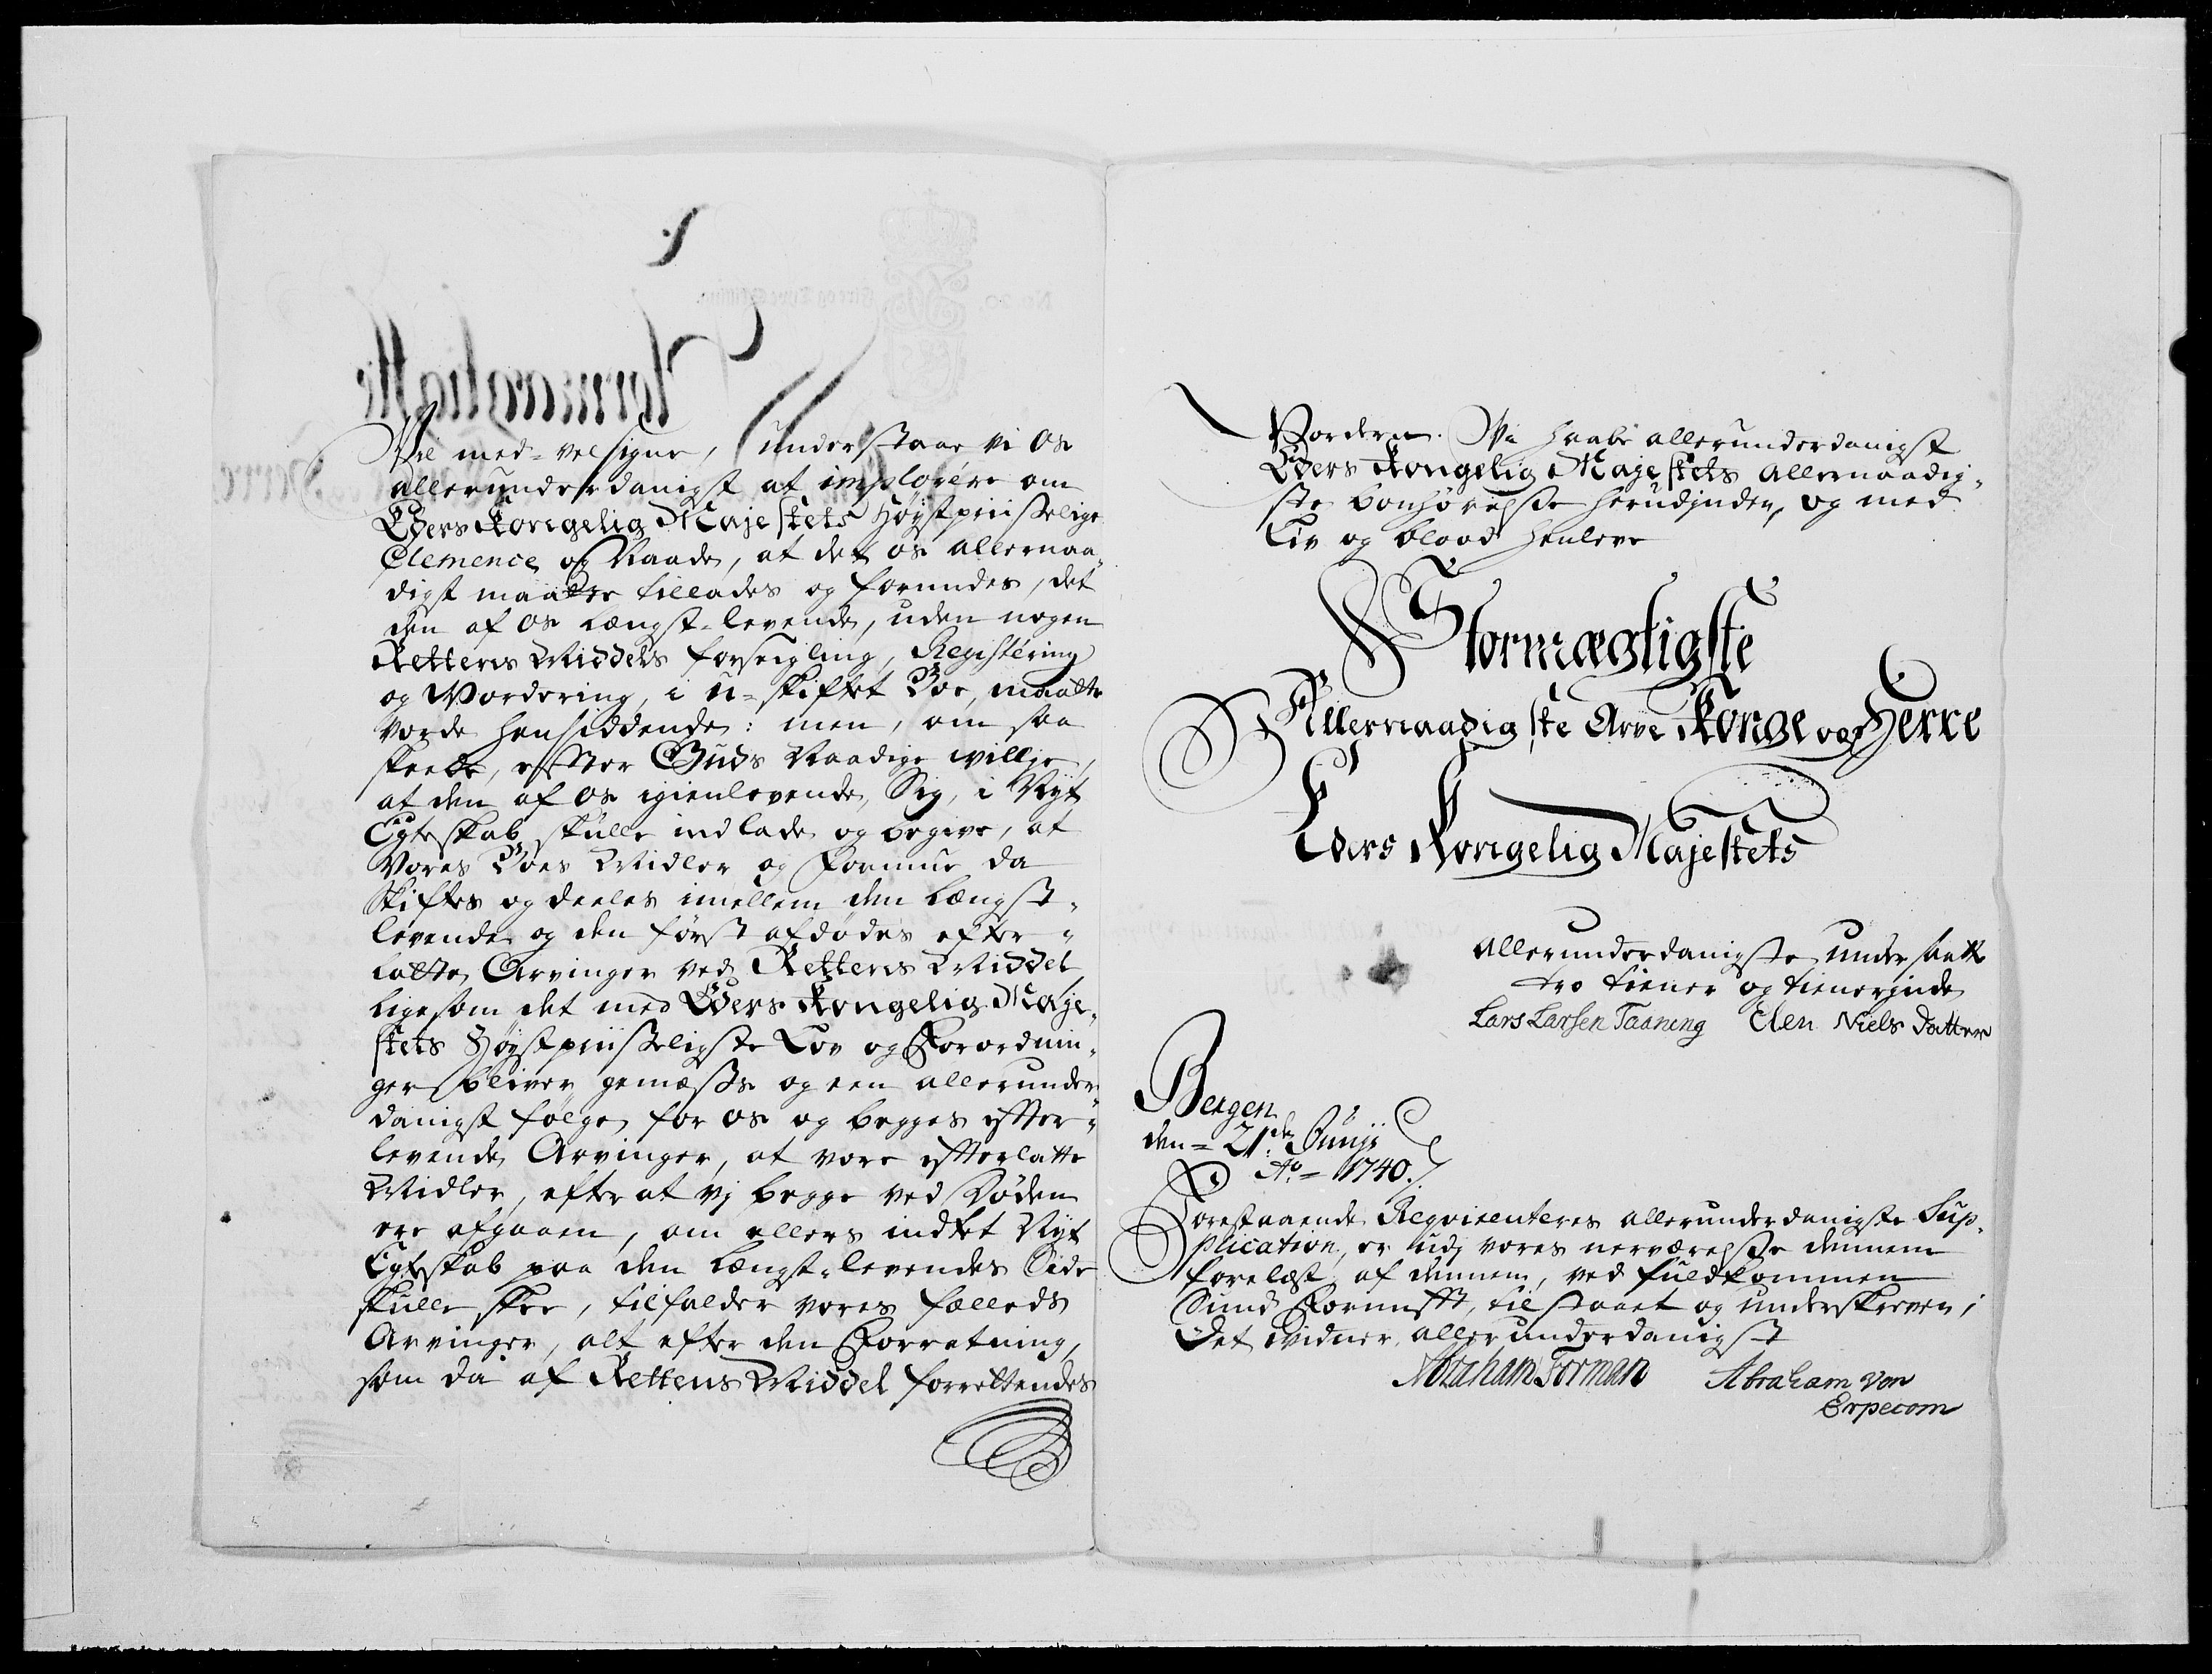 Vil med-velsigne, understaar vi os
allerunderdanigst at implorere om
Eders Kongelig Majestets Høystpriisselige
Clemence og Naade, at det os allernaa-
digst maatte tillades og forundes, det
den af os Længst-levende, uden nogen
Rettens Middels forseigling, Registering
og Vordering, i u-skiftet Boe, maatte
vorde hensiddende: men, om saa
skeede, efter Guds Naadige villje,
at den af os igienlevende, Sig, i Nyt
Egteskab skulle indlade og begive, at
Vores Boes Midler og Formue da
skiftes og deeles imellem den Længst-
levende og den først afdødes efter-
latte Arvinger ved Rettens Middel
ligesom det med Eders Kongelig Maje-
stets Høystpriisseligste Lov og Forordnin-
ger bliver gemæss og een allerunder-
danigst følge for os og begges effter-
levende Arvinger, at vore effterlatte
Midler, efter at vj begge ved Døden
ere afgaaen, om ellers indtet Nyt
Egteskab paa den Længst-levendes Side
skulle skee, tilfalder vores fælleds
Arvinger, alt efter den Forretning,
som da af Rettens Middel forrettendes
Vorder. Vi haabe allerunderdanigst
Eders Kongelig Majestets Allernaadig-
ste bønhørelse herudjnden, og med
Liv og blood henleve
Stormægtigste
Allernaadigste Arve Konge og Herre
Eders Kongelig Majestets
allerunderdanigste undersaatte
tro tiener og tienerjnde
Lars Larsen Taaning Elen Niels Datter
Bergen
den = 21de Junij
Ao = 1740./.
Forestaaende Reqvirenteres allerunderdanigste Sup-
plication, er udj vores nerværelse dennem
forelæst, af dennem, ved fuldkommen
Sund Fornufft, tilstaaet og underskreven;
Det vidner allerunderdanigst
Abraham Forman Abraham von
Erpecom